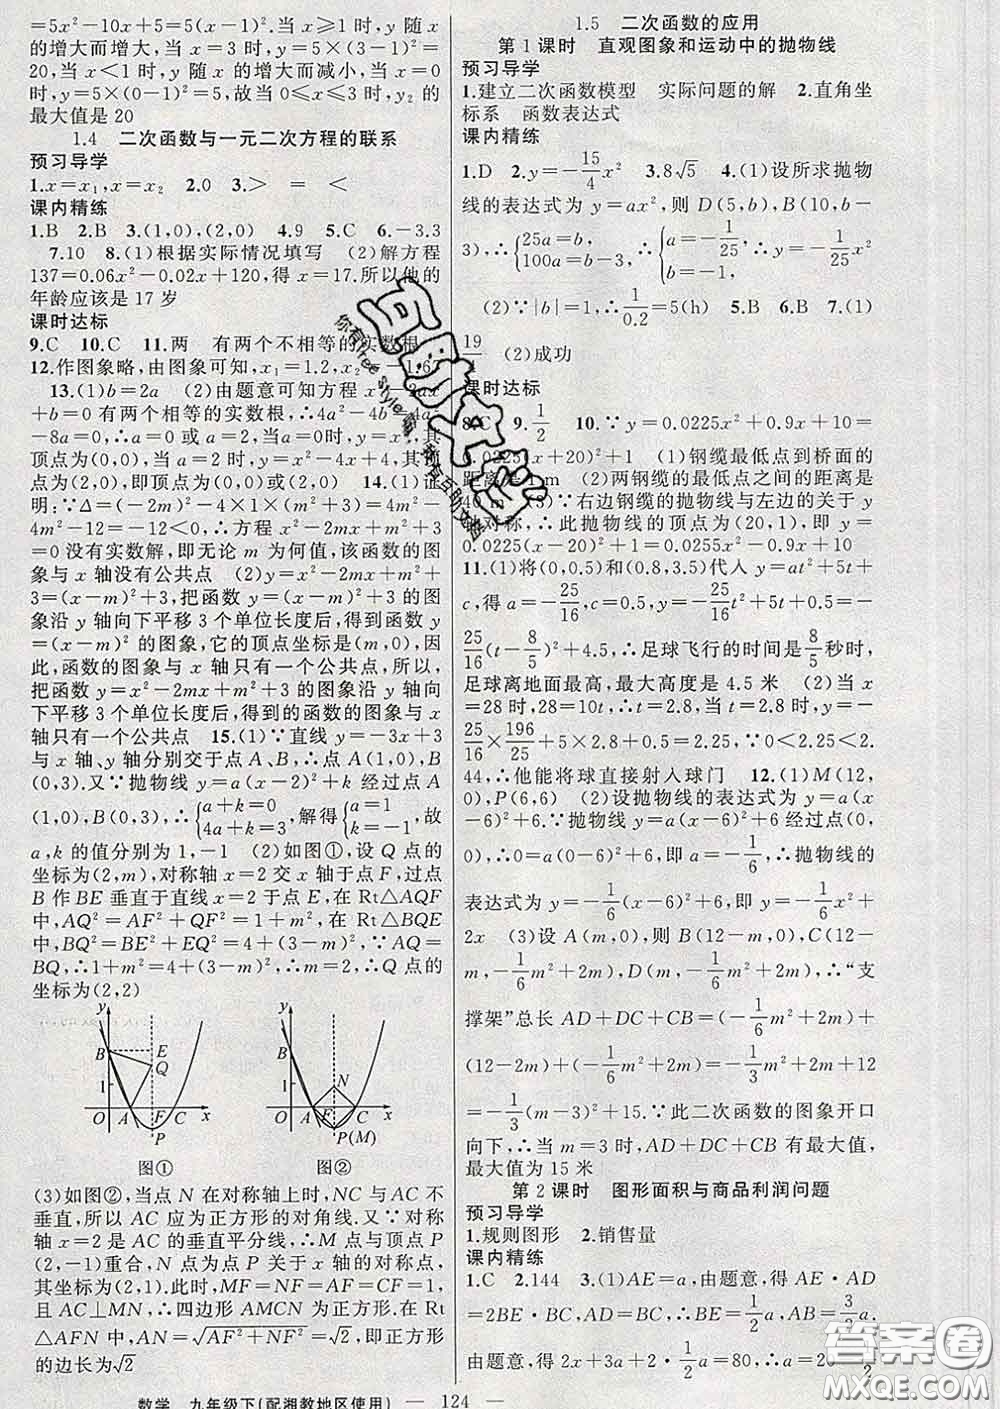 =5x²-10x+5=5(x-1)²,当 x>1 时,y 随
x 的增大而增大,当 x=3 时,y=5×(3-1)²=
20,当 x<1 时,y 随 x 的增大而减小,当 x=0
时,y=5×(0-1)²=5,故当 0≤x≤3 时,y₂ 的
最大值是 20
1.4 二次函数与一元二次方程的联系
预习导学
1.x=x₁,x=x₂ 2.0 3.> = <
课内精练
1.B 2.B 3.(1,0),(2,0) 4.9 5.C 6.-3.3
7.10 8.(1)根据实际情况填写 (2)解方程
137=0.06x²-0.02x+120,得 x=17.所以他的
年龄应该是 17 岁
课时达标
9.C 10.C 11.两 有两个不相等的实数根
12.作图象略,由图象可知,x₁=1.2,x₂ -1.67
13.(1)b=2a (2)由题意可知方程 x² 2ax
+b=0 有两个相等的实数根,∴4a²-4b=4a²
-8a=0,∴a=0 或 a=2,当 a=0 时,y=x²,其
顶点为(0,0),当 a=2 时,y=x²-4x+4,其顶
点为(2,0),即顶点为(0,0)或(2,0) 14.(1)证
明:∵Δ=(-2m)²-4×1×(m²+3)=4m²-
4m²-12=-12<0,∴方程 x²-2mx+m²+3
=0 没有实数解,即无论 m 为何值,该函数的图
象与 x 轴没有公共点 (2)y=x²-2mx+m²+
3=(x-m)²+3,把函数 y=(x-m)²+3 的图
象沿 y 轴向下平移 3 个单位长度后,得到函数 y
=(x-m)² 的图象,它的顶点坐标是(m,0),因
此,函数的图象与 x 轴只有一个公共点,所以,
把函数 y=x²-2mx+m²+3 的图象沿 y 轴向
下平移 3 个单位长度后,得到的函数的图象与 x
轴只有一个公共点 15.(1)∵直线 y=-3x+3
与 x轴、y轴分别交于点 A、B,∴点 A(1,0),B
(0,3).又∵抛物线 y=a(x-2)²+k 经过点 A
(1,0),B(0,3),∴{a+k=0 4a+k=3,解得{a=1 k=-1,故
a,k 的值分别为 1,-1 (2)如图①,设 Q 点的
坐标为(2,m),对称轴 x=2 交 x轴于点 F,过点
B 作 BE 垂直于直线 x=2 于点 E,在 Rt△AQF
中,AQ²=AF²+QF²=1+m²,在 Rt△BQE
中,BQ²=BE²+EQ²=4+(3-m)²,∵AQ=
BQ,∴1+m²=4+(3-m)²,∴m=2,∴Q 点的
坐标为(2,2)
y B E Q 1 O A F C x P
图①
y B 1 N O A F C x P(M)
图②
(3)如图②,当点 N 在对称轴上时,NC 与 AC 不
垂直,所以 AC 应为正方形的对角线.又∵对称
轴 x=2 是 AC 的垂直平分线,∴M 点与顶点 P(2,
-1)重合,N 点为点 P 关于 x 轴的对称点,
其坐标为(2,1).此时,MF=NF=AF=CF=1,
且 AC⊥MN,∴四边形 AMCN 为正方形.在 Rt
△AFN 中,AN=√(AF²+NF²)=√2,即正方形
的边长为√2
1.5 二次函数的应用
第 1 课时 直观图象和运动中的抛物线
预习导学
1.建立二次函数模型 实际问题的解 2.直角坐
标系 函数表达式
课内精练
1.D 2.y=-15/4 x² 3.8√5 4.(1)设所求抛物
线的表达式为 y=ax²,则 D(5,b),B(10,b-
3),∴{25a=b, 100a=b-3 ∴{a=-1/25, b=-1, ∴y=-1/25 x²
(2)∵|b|=1,∴1/0.2=5(h) 5.B 6.B 7.(1)
19/4 (2)成功
课时达标
8.C 9.1/2 10.∵y=0.0225x²+0.9x+10=
0.0225(x+20)²+1 (1)钢缆最低点到桥面的
距离是 1 m (2)两钢缆的最低点之间的距离是
40 m (3)∵右边钢缆的抛物线与左边的关于 y
轴对称,∴此抛物线的顶点为(20,1),即 y=
0.0225(x-20)²+1=0.0255x²-0.9x+10
11.(1)将(0,0.5)和(0.8,3.5)代入 y=at²+5t+
c,得 a=-25/16,c=0.5,y=-25/16 t²+5t+0.5=-
25/16(t-8/5)²+4.5,∴足球飞行的时间是8/5秒时,
足球离地面最高,最大高度是 4.5 米 (2)当 x
=28 时,28=10t,∴t=2.8,当 t=2.8 时,y=-
25/16×196/25+5×2.8+0.5=2.25.∵0<2.25<2.
44,∴他能将球直接射入球门 12.(1)M(12,
0),P(6,6) (2)设抛物线的表达式为 y=a(x
-6)²+6.∵抛物线 y=a(x-6)²+6 经过点(0,
0),∴0=a(0-6)²+6,即 a=-1/6,∴抛物线的
表达式为 y=-1/6(x-6)²+6,即 y=-1/6 x²+
2x (3)设 A(m,0),则 B(12-m,0),C(12-
m,-1/6 m²+2m),D(m,-1/6 m²+2m),∴“支
撑架”总长 AD+DC+CB=(-1/6 m²+2m)+
(12-2m)+(-1/6 m²+2m)=-1/3 m²+2m+12
=-1/3(m-3)²+15.∵此二次函数的图象开口
向下,∴当 m=3 时,AD+DC+CB 有最大值,
最大值为 15 米
第 2 课时 图形面积与商品利润问题
预习导学
1.规则图形 2.销售量
课内精练
1.C 2.144 3.(1)AE=a,由题意,得 AE·AD
=2BE·BC,AD=BC,∴BE=1/2 a,AB=3/2 a,
由题意,得 2x+3a+2·1/2 a=80,∴a=20-1/2
数学 九年级下(配湘教地区使用) — 124 —
答案圈
MXQE.COM